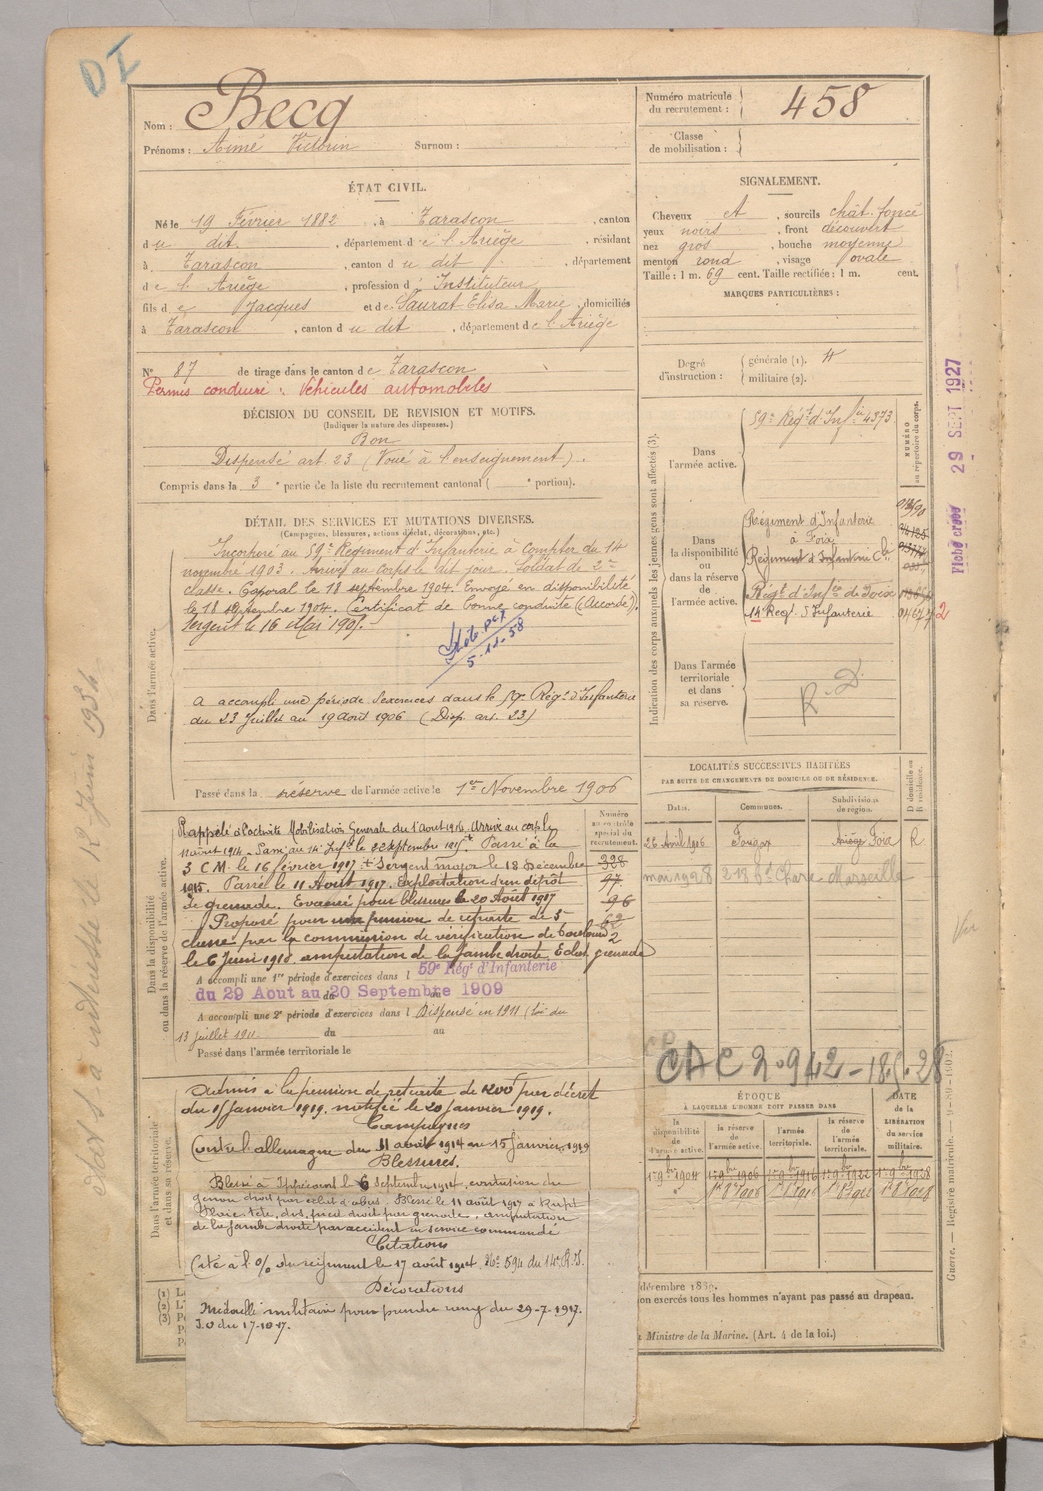 OI
Nom : Becq
Prénoms : Aimé Victorin Surnom :
Numéro matricule du recrutement : 458
Classe de mobilisation :
ÉTAT CIVIL.
Né le 19 Février 1882, à Tarascon, canton
du dit, département de l'Ariège, résidant
à Tarascon, canton du dit, département
de l'Ariège, profession d'Instituteur
fils de Jacques et de Saurat Elisa Marie, domiciliés
à Tarascon, canton du dit, département de l'Ariège
N° 87 de tirage dans le canton de Tarascon
Permis conduire : Véhicules automobiles
DÉCISION DU CONSEIL DE REVISION ET MOTIFS.
(Indiquer la nature des dispenses.)
Bon
Dispensé art. 23 (Voué à l'enseignement).
Compris dans la 3e partie de la liste du recrutement cantonal ( e portion).
SIGNALEMENT.
Cheveux et, sourcils chât. foncé
yeux noirs, front découvert
nez gros, bouche moyenne
menton rond, visage ovale
Taille : 1 m. 69 cent. Taille rectifiée : 1 m. cent.
MARQUES PARTICULIÈRES :
Degré d'instruction : générale (1).
militaire (2).
DÉTAIL DES SERVICES ET MUTATIONS DIVERSES.
(Campagnes, blessures, actions d'éclat, décorations, etc.)
Dans l'armée active.
Incorporé au 59e Régiment d'Infanterie à compter du 14
novembre 1903. Arrivé au corps le dit jour. Soldat de 2e
classe. Caporal le 18 septembre 1904. Envoyé en disponibilité
le 18 septembre 1904. Certificat de bonne conduite (Accordé).
Sergent le 16 Mai 1905.
5-11-58
A accompli une période d'exercices dans le 59e Régt d'Infanterie
du 23 Juillet au 19 août 1906 (Disp. art. 23)
Passé dans la réserve de l'armée active le 1er Novembre 1906
Indication des corps auxquels les jeunes gens sont affectés (3).
NUMÉRO au répertoire du corps.
Dans l'armée active.
59e Régt d'Infie 4373
Dans la disponibilité ou dans la réserve de l'armée active.
Régiment d'Infanterie
à Foix
Régiment d'Infanterie
Régt d'Infie de Foix
14e Regt d'Infanterie
Dans l'armée territoriale et dans sa réserve.
R. D.
29 SEPT 1927
Fiche créée
LOCALITÉS SUCCESSIVES HABITÉES
PAR SUITE DE CHANGEMENTS DE DOMICILE OU DE RÉSIDENCE.
Dates. Communes. Subdivisions de région. D domicile ou R résidence.
26 Avril 1906 Fougax Ariège Foix R
mai 1928 Marseille
Dans la disponibilité ou dans la réserve de l'armée active.
Numéro au contrôle spécial du recrutement.
Rappelé à l'activité Mobilisation Générale du 1 Août 1914. Arrivé au corps le
11 août 1914. Passé au 14e Infie le 22 septembre 1915. Passé à la
3 C M. le 16 février 1917 + Sergent major le 18 Décembre
1915. Passé le 11 Août 1917. Exploitation d'un dépôt
de grenade. Evacué pour blessures le 20 Août 1917
Proposé pour une pension de retraite de 5e
classe par la commission de vérification de Toulouse
le 6 Juin 1918 amputation de la jambe droite. Eclat grenade
328
97
96
62
2
A accompli une 1re période d'exercices dans l 59e Régt d'Infanterie
du 29 Aout au 20 Septembre 1909
A accompli une 2e période d'exercices dans l Dispensé in 1911 (loi du
13 juillet 1911. du au
Passé dans l'armée territoriale le
CAC 2.942-18.5.28
Dans l'armée territoriale et dans sa réserve.
Admis à la pension de retraite de 1200f par décret
du 15 Janvier 1919. notifié le 20 janvier 1919.
Campagnes
Contre l'allemagne du 11 août 1914 au 15 Janvier 1919
Blessures.
Blessé à Ippécourt le 6 septembre 1914, contusion du
genou droit par éclat d'obus. Blessé le 11 août 1917 à Rupt
Plaie tête, dos, pied droit par grenade, amputation
de la jambe droite par accident en service commandé
Citations
Cité à l'% du régiment le 17 août 1917. N° 594 du 14e R.I.
Décorations
Médaille militaire pour prendre rang du 29-7-1917.
J.O du 17-10-17.
ÉPOQUE
À LAQUELLE L'HOMME DOIT PASSER DANS
la disponibilité de l'armée active. la réserve de l'armée active. l'armée territoriale. la réserve de l'armée territoriale.
DATE de la LIBÉRATION du service militaire.
1er 9bre 1904 1er 9bre 1906 1er 9bre 1916 1er 9bre 1922 1er 9bre 1928
(1)
(2)
(3)
décembre 1889.
on exercés tous les hommes n'ayant pas passé au drapeau.
Ministre de la Marine. (Art. 4 de la loi.)
Guerre. — Registre matricule.